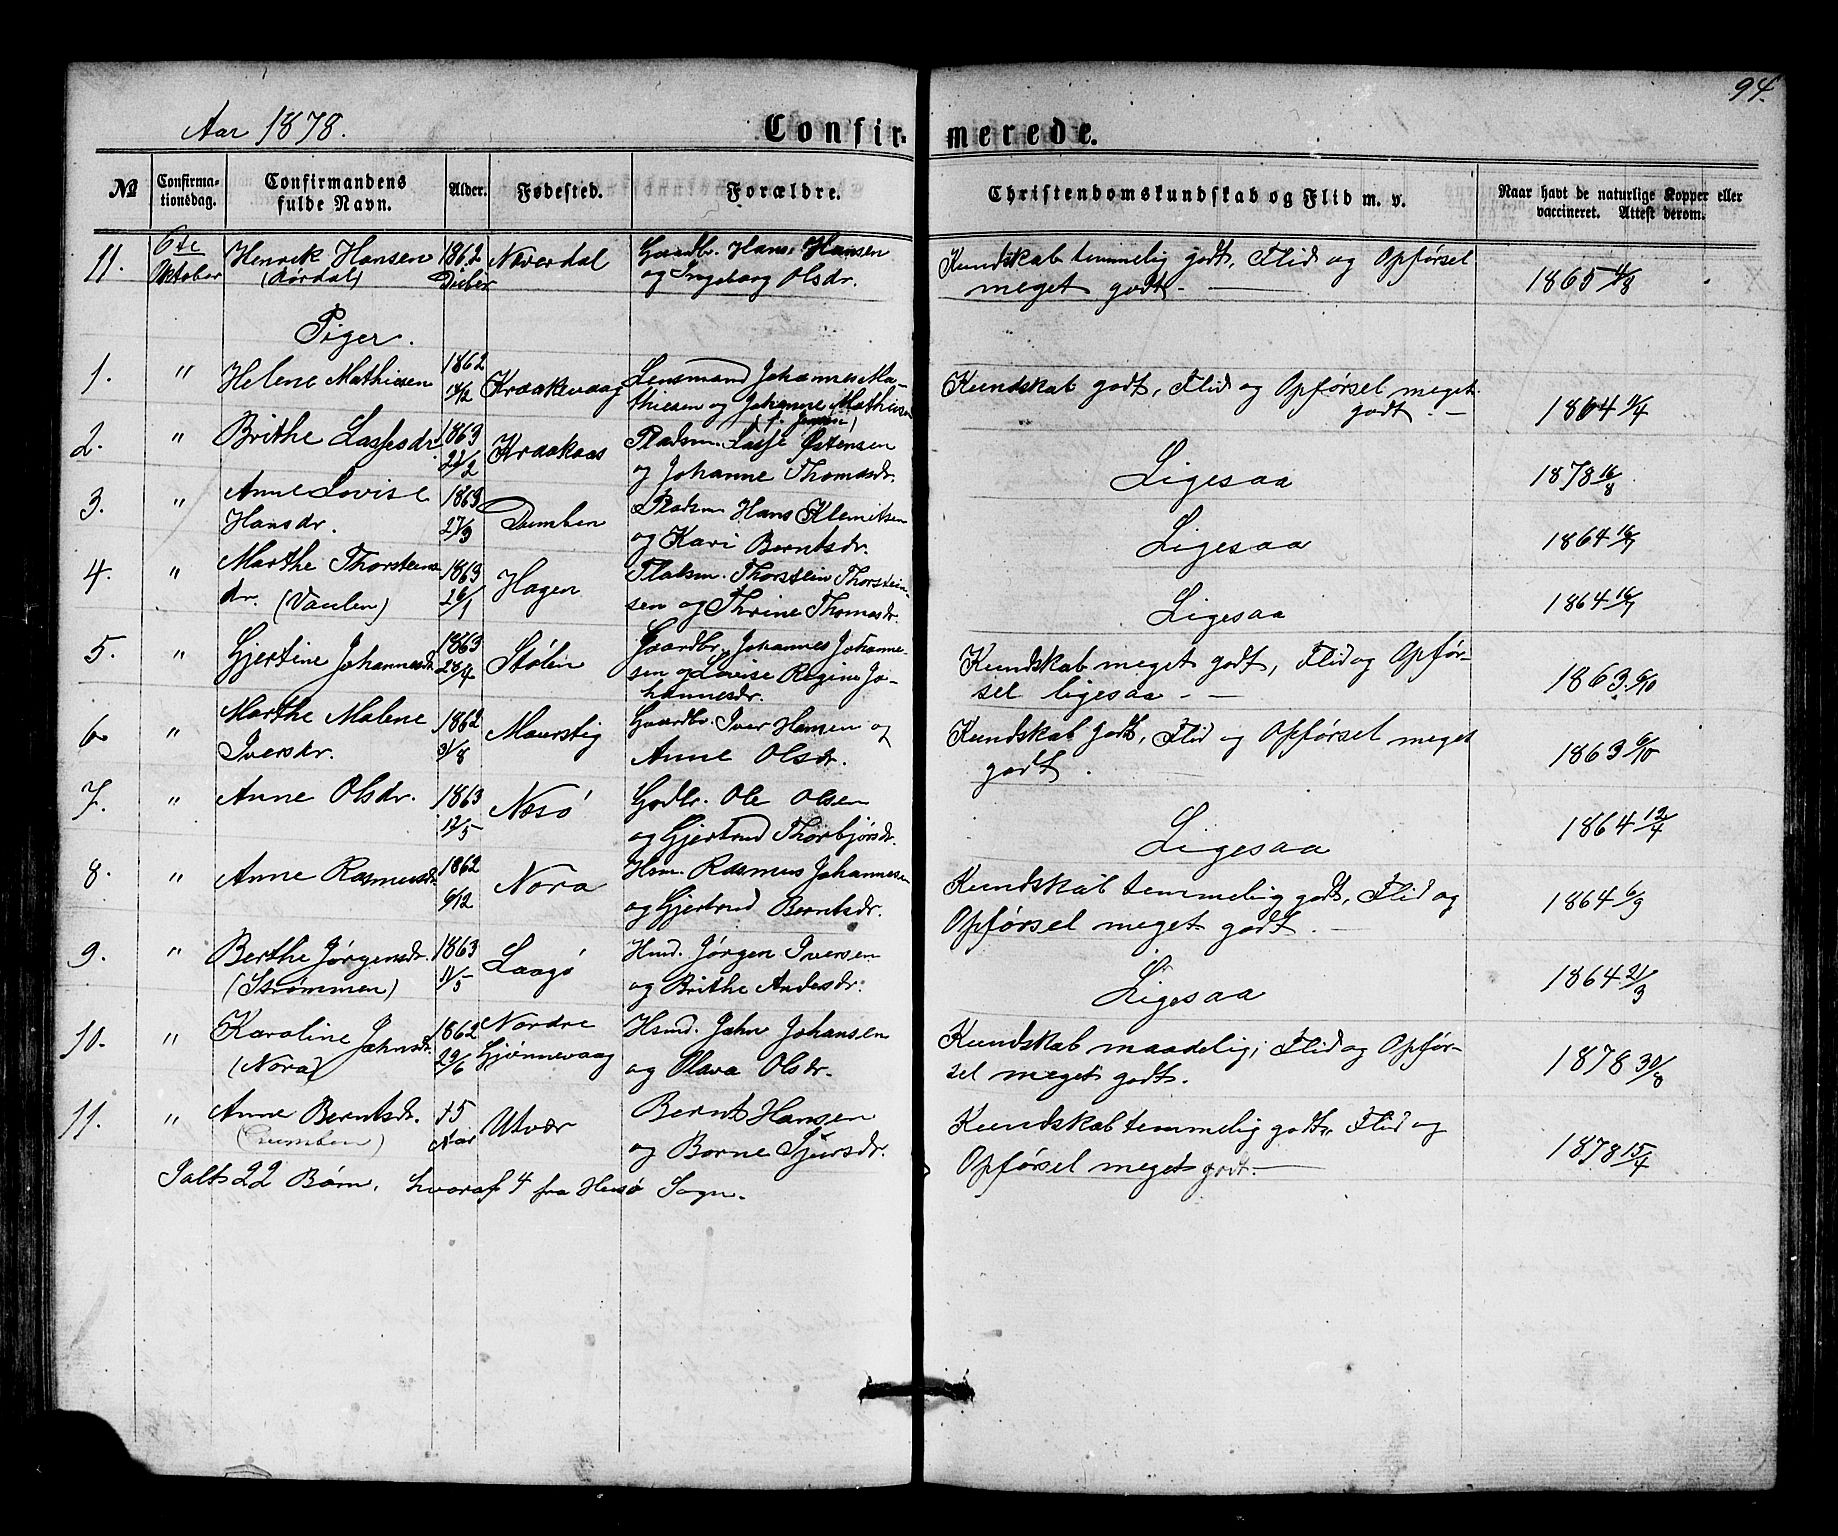 94.
Aar 1878.
Confirmerede.
№ Confirmationsdag. Confirmandens fulde Navn. Alder. Fødested. Forældre. Christendomskundskab og Flid m. v. Naar havt de naturlige Kopper eller vaccineret. Attest derom.
11. 6te Oktober Henrik Hansen 1862 Neverdal Gaardbr. Hans Hansen Kundskab temmelig godt, Flid og Opførsel
(Rørdal) Dcbr og Ingeborg Olsdr. meget godt. 1865 4/8
Piger.
1. " Helene Mathiesen 1862 14/12 Kraakevaag Lensmand Johannes Ma- Kundskab godt, Flid og Opførsel meget
thiesen og Johanne Mathiesen godt. 1864 1/4
(f. Jensen)
2. " Brithe Lassesdr. 1863 22/2 Kraakaas Pladsm. Lasse Østensen
og Johanne Thomasdr. Ligesaa 1878 16/8
3. " Anne Lovise 1863 Dumben Pladsm Hans Klemetsen
Hansdr. 27/3 og Kari Berntsdr. Ligesaa 1864 16/7
4. " Marthe Thorsteins 1863 Hagen Pladsm. Thorstein Thorstein-
dr. (Vaulen) 26/1 sen og Thrine Thomasdr. Ligesaa 1864 16/7
5. " Gjertine Johannesdr. 1863 Stølen Gaardbr. Johannes Johanne- Kundskab meget godt, Flid og Opfør-
28/4 sen og Lovise Regine Jo- sel ligesaa 1863 6/10
hannesdr.
6 " Marthe Malene 1862 Maurstig Gaardbr. Iver Hansen og Kundskab godt, Flid og Opførsel meget
Iversdr. 31/8 Anne Olsdr. godt. 1863 6/10
7. " Anne Olsdr. 1863 Nesø Grdbr. Ole Olsen
12/5 og Gjertrud Thorbjørsdr. Ligesaa 1864 12/4
8. " Anne Rasmusdr. 1862 Nora Hsm. Rasmus Johannesen Kundskab temmelig godt, Flid og
6/12 og Gjertrud Berntsdr. Opførsel meget godt. 1864 6/9
9. " Berthe Jørgensdr. 1863 Laagø Hmd. Jørgen Iversen
(Strømmen) 11/5 og Brithe Andersdr. Ligesaa 1864 21/3
10. " Karoline Jahnsdr. 1862 Nordre Hsmd. Jahn Johansen Kundskab maadelig; Flid og Opfør-
(Nora) 29/6 Gjønnevaag og Olava Olsdr. sel meget godt. 1878 30/8
11. " Anne Berntsdr. 15 Utvær Bernt Hansen Kundskab temmelig godt, Flid og
(Dumben) Aar og Borne Sjursdr. Opførsel meget godt. 1878 15/4
Ialt 22 Børn, hvoraf 4 fra Husø Sogn.